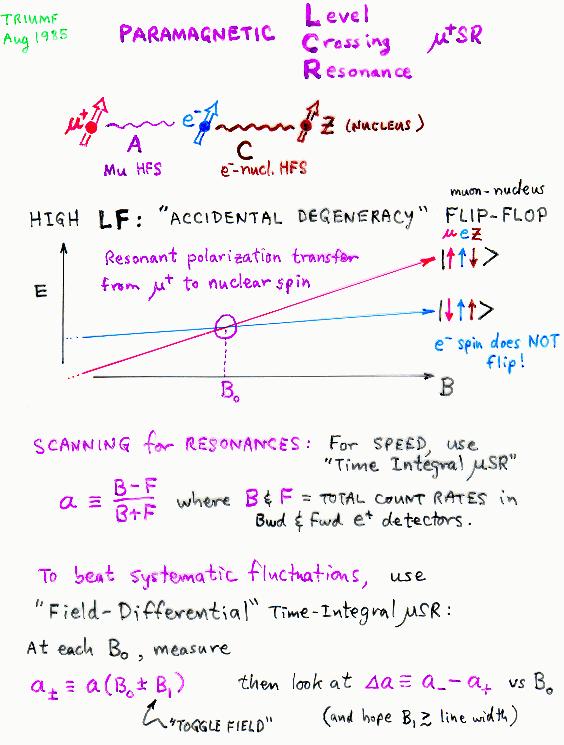 TRIUMF
Aug 1985
PARAMAGNETIC Level Crossing Resonance μ⁺SR
μ⁺ e⁻ Z (NUCLEUS)
A C
Mu HFS e⁻-nucl. HFS
muon-nucleus
HIGH LF: "ACCIDENTAL DEGENERACY" FLIP-FLOP
μ e Z
Resonant polarization transfer |↑↑↓>
from μ⁺ to nuclear spin
E
|↓↑↑>
e⁻ spin does NOT
flip!
B₀ B
SCANNING for RESONANCES: For SPEED, use
"Time Integral μSR"
a ≡ (B-F)/(B+F) where B & F = TOTAL COUNT RATES in
Bwd & Fwd e⁺ detectors.
To beat systematic fluctuations, use
"Field-Differential" Time-Integral μSR:
At each B₀, measure
a± ≡ a(B₀ ± B₁) then look at Δa ≡ a₋ - a₊ vs B₀
"TOGGLE FIELD" (and hope B₁ ≳ line width)